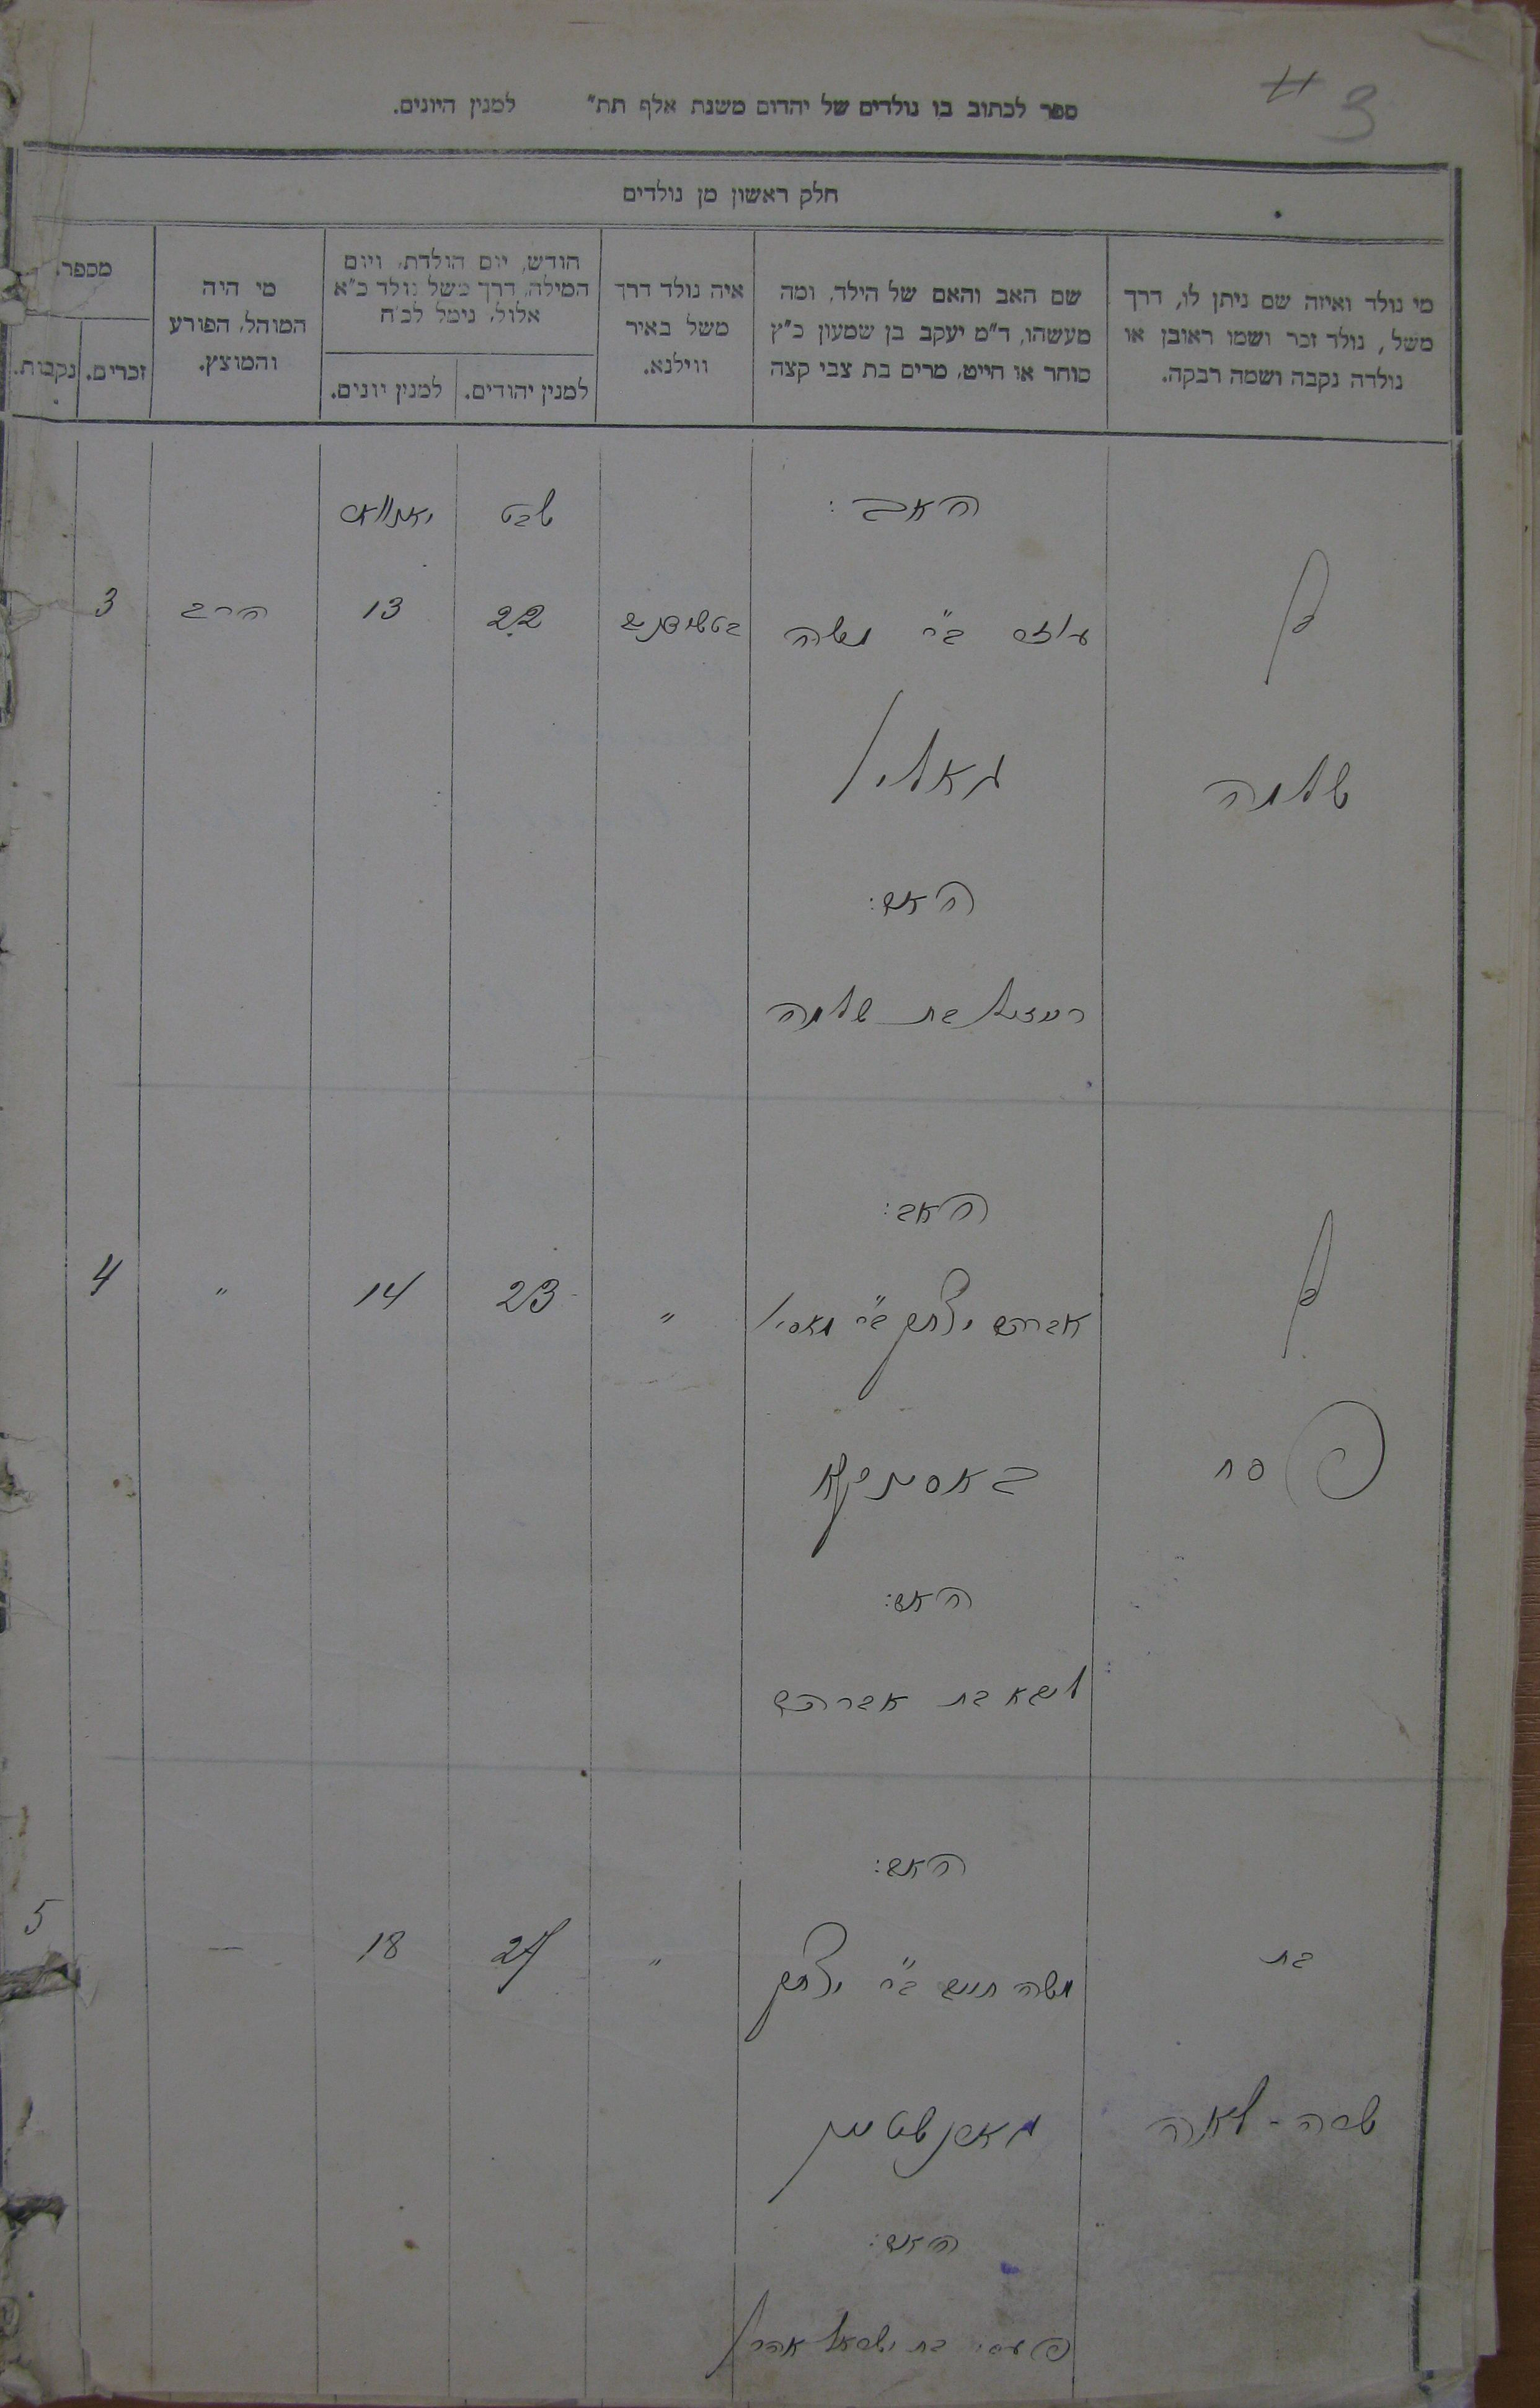 3
ספר לכתוב בו נולדים של יהדום משנת אלף תת״ למנין היונים.
חלק ראשון מן נולדים
מי נולד ואיזה שם ניתן לו, דרך
משל, נולד זכר ושמו ראובן או
נולדה נקבה ושמה רבקה.
שם האב והאם של הילד, ומה
מעשהו, ד״מ יעקב בן שמעון כ״ץ
סוחר או חייט, מרים בת צבי קצה
איה נולד דרך
משל באיר
ווילנא.
חודש, יום הולדת, ויום
המילה, דרך משל נולד כ״א
אלול, נימל לכ״ח
למנין יהודים.
למנין יונים.
מי היה
המוהל, הפורע
והמוצץ.
מספר.
זכרים.
נקבות.
האב:
שבט
יאנוואר
בן
ב״ר משה
22
13
הרב
3
שלמה
האם:
בת שלמה
האב:
בן
אברהם יצחק ב״ר
"
23
14
"
4
פסח
האם:
בת אברהם
האב:
בת
משה חיים ב״ר יצחק
"
27
18
—
5
שרה - לאה
האם:
בת ישראל אהרן